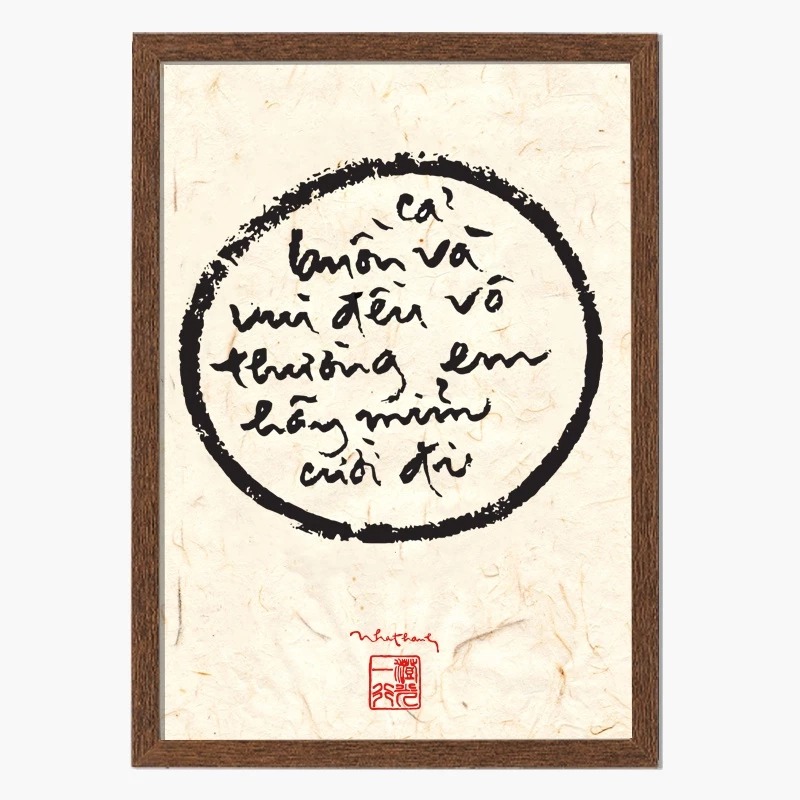 cả
buồn và
vui đều vô
thường em
hãy mỉm
cười đi
nhathanh
一澄
行光